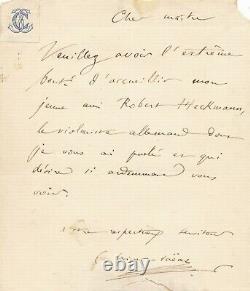 Cher maître
Veuillez avoir l'extrême
bonté d'accueillir mon
jeune ami Robert Heckmann,
le violoniste allemand dont
je vous ai parlé et qui
désire si ardemment vous
voir.
Votre respectueux serviteur
C. Saint-Saëns